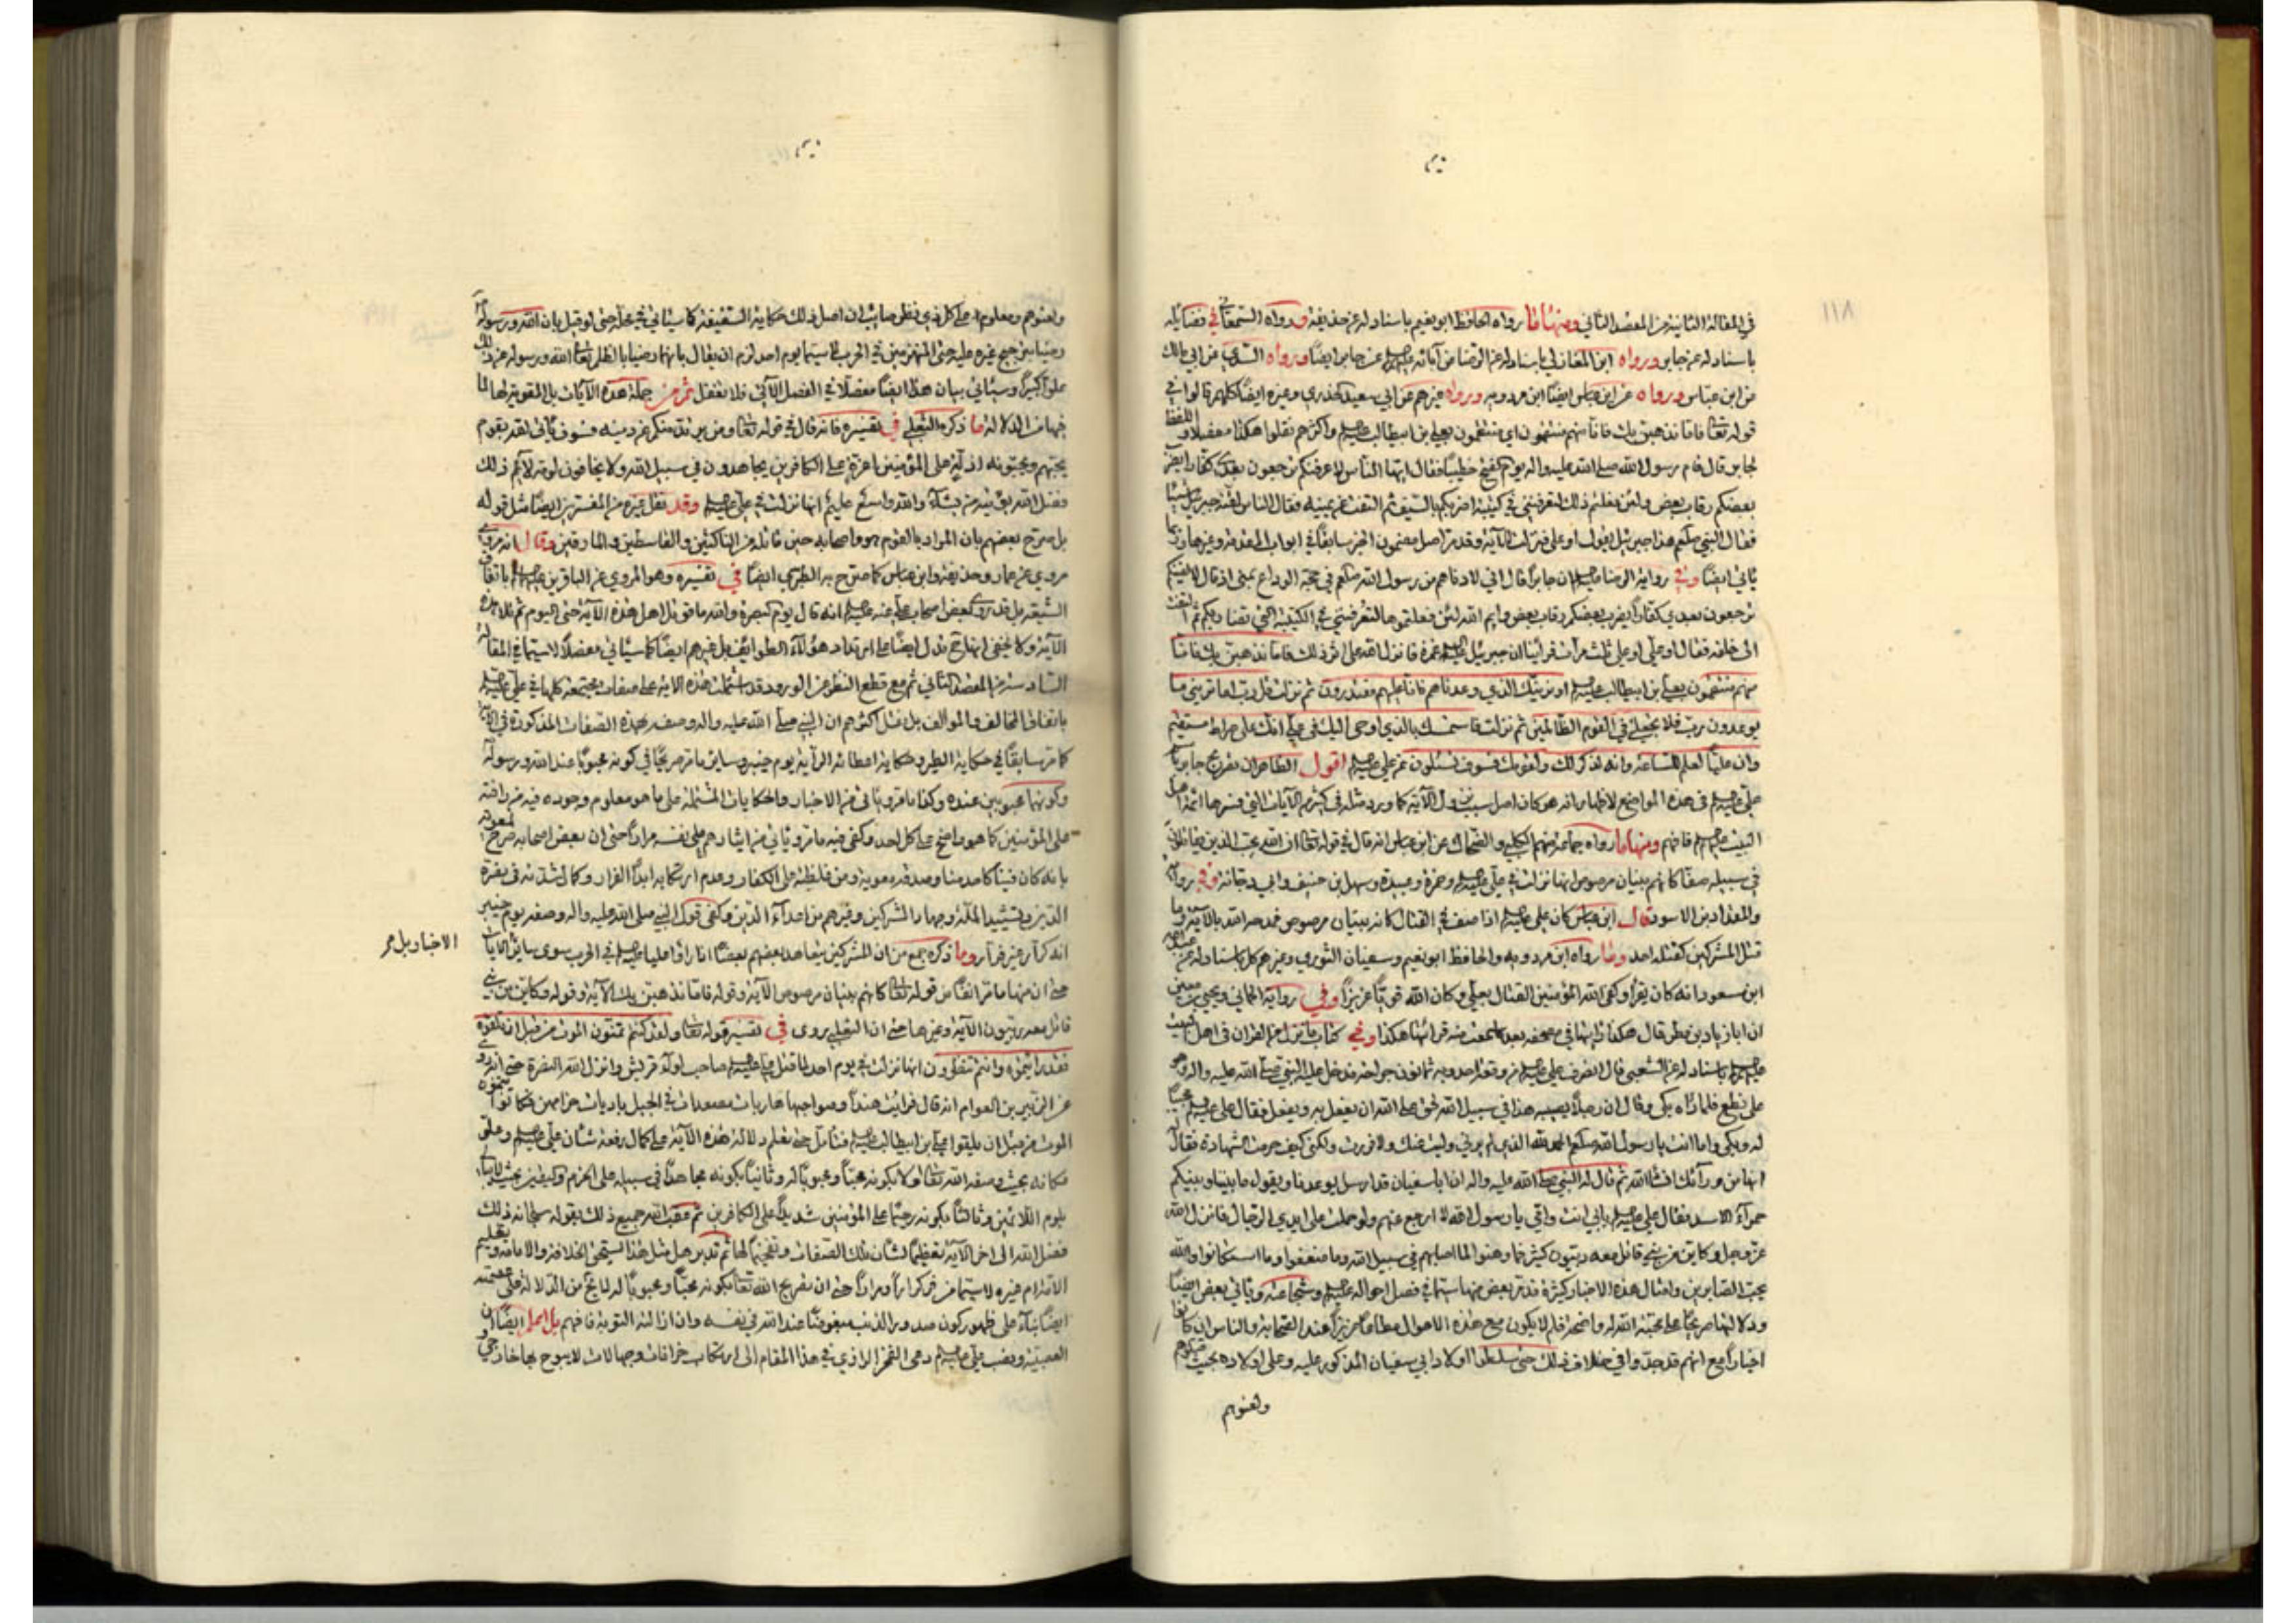 ١١٨
في المقالة الثانية من المقصد الثاني ومنها ما رواه الحافظ ابو نعيم باسناد له عن حذيفة ورواه السمعاني في فضائله
باسناد له عن جابر ورواه ابن المغازلي باسناد له عن الرضا من آبائه عن جابر ايضا ورواه السدي عن ابي مالك
عن ابن عباس ورواه عن ابن عباس ايضا ابن مردويه ورواه غيرهم عن ابي سعيد الخدري وغيره ايضا كلهم قالوا في
قوله تعالى فاما نذهبن بك فانا منهم منتقمون اي منتقمون بعلي بن ابيطالب واكثرهم نقلوا هكذا مفصلا واللفظ
لجابر قال قام رسول الله صلى الله عليه واله يوم الفتح خطيبا فقال ايها الناس لاعرفنكم ترجعون بعدي كفارا يضرب
بعضكم رقاب بعض ولئن فعلتم ذلك لتعرفنني في كتيبة اضربكم بالسيف ثم التفت عن يمينه فقال الناس لقنه جبرئيل شيئا
فقال النبي صلعم هذا جبرئيل يقول او علي فنزلت الآية وقد مر اصل مضمون الخبر سابقا في ابواب المقدمة وغيرها وربما
يأتي ايضا وفي رواية الرضا ان جابرا قال اني لادناهم من رسول الله صلعم في حجة الوداع بمنى اذ قال لا الفينكم
ترجعون بعدي كفارا يضرب بعضكم رقاب بعض وايم الله لئن فعلتموها لتعرفنني في الكتيبة التي تضاربكم ثم التفت
الى خلفه فقال او علي او علي ثلث مرات فرأينا ان جبرئيل غمزه فانزل الله على اثر ذلك فاما نذهبن بك فانا
منهم منتقمون بعلي بن ابيطالب او نرينك الذي وعدناهم فانا عليهم مقتدرون ثم نزلت قل رب اما تريني ما
يوعدون رب فلا تجعلني في القوم الظالمين ثم نزلت فاستمسك بالذي اوحي اليك في علي انك على صراط مستقيم
وان عليا لعلم للساعة وانه لذكر لك ولقومك فسوف تسئلون عن علي اقول الظاهر ان تصريح جابر باسم
علي في هذه المواضع لاظهار انه هو كان اصل سبب نزول الآية كما ورد مثله في كثير من الآيات التي فسرها ائمة اهل
البيت فافهم ومنها ما رواه جماعة منهم الكلبي والضحاك عن ابن عباس انه قال في قوله تعالى ان الله يحب الذين يقاتلون
في سبيله صفا كانهم بنيان مرصوص انها نزلت في علي وحمزة وعبيدة وسهل بن حنيف وابي دجانة وفي رواية
والمقداد بن الاسود قال ابن عباس كان علي اذا صف في القتال كانه بنيان مرصوص فمدحه الله بالآية وما
قتل المشركين كقتله احد ومنها رواه ابن مردويه والحافظ ابو نعيم وسفيان الثوري وغيرهم كل باسناد له عن عبدالله
ابن مسعود انه كان يقرأ وكفى الله المؤمنين القتال بعلي وكان الله قويا عزيزا وفي رواية الحماني ويحيى بن معين
ان ابا زياد بن مطر قال هكذا رايتها في مصحفه بعد ما سمعت منه قرائتها هكذا وفي كتاب ما نزل من القران في اهل البيت
باسناد له عن الشعبي قال انصرف علي من وقعة احد وبه ثمانون جراحة فدخل عليه النبي صلى الله عليه واله وهو
على نطع فلما رآه بكى وقال ان رجلا يصيبه هذا في سبيل الله لحق على الله ان يفعل به ويفعل فقال علي مجيبا
له وبكى واما انت يا رسول الله صلعم الحمد لله الذي لم يرني وليت عنك ولا فررت ولكن كيف حرمت الشهادة فقال
انها من ورآئك انشاالله ثم قال له النبي صلى الله عليه واله ان ابا سفيان قد ارسل يوعدنا ويقول ما بيننا وبينكم
حمرآء الاسد فقال علي بابي انت وامي يا رسول الله لا ارجع عنهم ولو حملت على ايدي الرجال فانزل الله
عز وجل وكاين من نبي قاتل معه ربيون كثير فما وهنوا لما اصابهم في سبيل الله وما ضعفوا وما استكانوا والله
يحب الصابرين وامثال هذه الاخبار كثيرة قد مر بعض منها سيما في فصل احواله وشجاعته ويأتي بعض ايضا
ودلالتها صريحا على محبة الله له واضحة فلم لا يكون مع هذه الاحوال مطاعا عزيزا عند الصحابة والناس ان كانوا
اخيارا مع انهم قد جدوا في خلاف ذلك حتى سلطوا اولاد ابي سفيان المذكور عليه وعلى اولاده بحيث قتلوهم
ولعنوهم
ولعنوهم ومعلوم على كل ذي نظر صائب ان اصل ذلك حكاية السقيفة كما سيأتي في محله حتى لو قيل بان الله ورسوله
رضيا بترجيح غيره عليه حتى المنهزمين في الحرب لا سيما يوم احد لزم ان يقال بانهما رضيا بالظلم تعالى الله ورسوله عن ذلك
علوا كبيرا وسيأتي بيان هذا ايضا مفصلا في الفصل الآتي فلا تغفل ثم من جملة هذه الآيات بل المقوية لها لما
فيها من الدلالة ما ذكره الثعلبي في تفسيره فانه قال في قوله تعالى ومن يرتدد منكم عن دينه فسوف يأتي الله بقوم
يحبهم ويحبونه اذلة على المؤمنين اعزة على الكافرين يجاهدون في سبيل الله ولا يخافون لومة لآئم ذلك
فضل الله يؤتيه من يشآء والله واسع عليم انها نزلت في علي وقد نقل غيره من المفسرين ايضا مثل قوله
بل صرح بعضهم بان المراد بالقوم هو واصحابه حين قاتله من الناكثين والقاسطين والمارقين وقال انه مروي
مروي عن عمار وحذيفة وابن عباس كما صرح به الطبرسي ايضا في تفسيره وهو المروي عن الباقرين باتفاق
الشيعة بل قد روى بعض اصحاب علي عنه انه قال يوم البصرة والله ما قوتل اهل هذه الآية حتى اليوم ثم تلا هذه
الآية ولا يخفى انها ح تدل ايضا على ارتداد هؤلآء الطوائف بل غيرهم ايضا كما سيأتي مفصلا لاسيما في المقالة
السادسة من المقصد الثاني ثم مع قطع النظر عن الورود قد اشتملت هذه الاية على صفات مجتمعة كلها في علي
باتفاق المخالف والموالف بل نقل اكثرهم ان النبي صلى الله عليه واله وصفه بهذه الصفات المذكورة في الآية
كما مر سابقا في حكاية الطير وحكاية اعطائه الراية يوم خيبر وساير ما مر صريحا في كونه محبوبا عند الله ورسوله
وكونهما محبوبين عنده وكذا ما مر ويأتي من الاخبار والحكايات المشتملة على ما هو معلوم وجوده فيه من رافته
على المؤمنين كما هو واضح على كل احد وكفى فيه ما مر ويأتي من ايثارهم على نفسه مرارا حتى ان بعض اصحابه صرح لمعوية
بانه كان فينا كاحدنا وصدقه معوية ومن غلظته على الكفار وعدم ارتكابه ابدا الفرار وكمال شدته في نصرة
الدين وتشييد الملة وجهاد المشركين وغيرهم من اعدآء الدين وكفى قول النبي صلى الله عليه واله وصفه يوم خيبر
انه كرار غير فرار وما ذكره جمع من ان المشركين يتعاهد بعضهم بعضا اذا راوا عليا في الحرب سوى ساير الآيات
الاخبار بل مر
حتى ان منها ما مر انفا من قوله تعالى كانهم بنيان مرصوص الآية وقوله فاما نذهبن بك الآية وقوله وكاين من نبي
قاتل معه ربيون الآية وغيرها حتى ان الثعلبي روى في تفسير قوله تعالى ولقد كنتم تمنون الموت من قبل ان تلقوه
فقد رايتموه وانتم تنظرون انها نزلت في يوم احد لما قتل علي صاحب لوآء قريش وانزل الله النصرة حتى انه روي
عن الزبير بن العوام انه قال فرايت هندا وصواحبها هاربات مصعدات في الجبل باديات خدامهن فكانوا يتمنون
الموت من قبل ان يلقوا علي بن ابيطالب فتأمل حتى تعلم دلالة هذه الآية على كمال رفعة شأن علي وعلو
مكانه بحيث وصفه الله تعالى اولا بكونه محبا ومحبوبا له وثانيا بكونه مجاهدا في سبيله على الجزم واليقين بحيث لا يبالي
بلوم اللائمين وثالثا بكونه رحيما على المؤمنين شديدا على الكافرين ثم عقب الله جميع ذلك بقوله سبحانه ذلك
فضل الله الى اخر الآية تعظيما لشأن تلك الصفات وتفخيما لها ثم تدبر هل مثل هذا يستحق الخلافة والامامة وتعليم
الاقدام غيره لاسيما من فر كرارا ومرارا حتى ان تصريح الله تعالى بكونه محبا ومحبوبا له لا يخ من الدلالة على عصمته
ايضا بنآء على ظهور كون صدور الذنب مبغوضا عند الله في نفسه وان ازالته التوبة فافهم بل اعلم ايضا ان
العصبية ونصب علي دعى الفخر الرازي في هذا المقام الى ارتكاب خرافات وجهالات لا يبوح بها خارجي